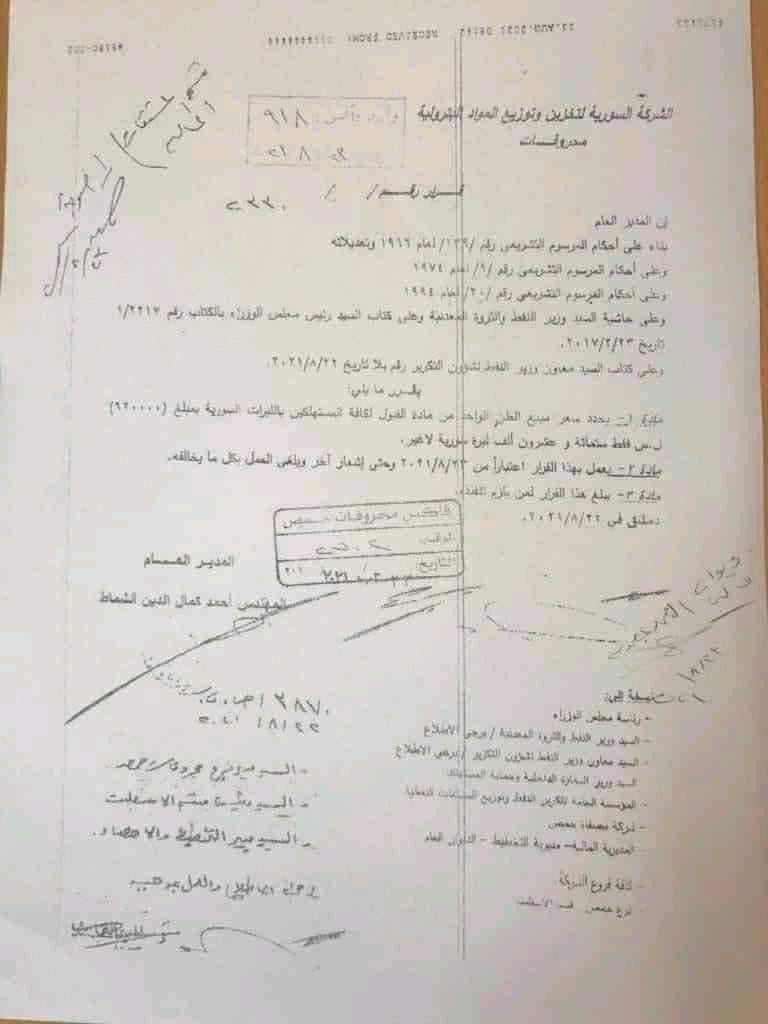 23.AUG.2021 08:42 RECEIVED FROM:
الشركة السورية لتخزين وتوزيع المواد البترولية
محروقات
وارد فاكس: ٩١٨
قرار رقم / / ٢٣٣٠
إن المدير العام
بناء على أحكام المرسوم التشريعي رقم /١٣٩/ لعام ١٩٦٦ وتعديلاته
وعلى أحكام المرسوم التشريعي رقم /٩/ لعام ١٩٧٤
وعلى أحكام المرسوم التشريعي رقم /٢٠/ لعام ١٩٩٤
وعلى حاشية السيد وزير النفط والثروة المعدنية وعلى كتاب السيد رئيس مجلس الوزراء بالكتاب رقم ١/٢٢١٧
تاريخ ٢٠١٧/٢/٢٣.
وعلى كتاب السيد معاون وزير النفط لشؤون التكرير رقم بلا تاريخ ٢٠٢١/٨/٢٢.
يقرر ما يلي:
مادة ١- يحدد سعر مبيع الطن الواحد من مادة الفيول لكافة المستهلكين بالليرات السورية بمبلغ (٦٢٠٠٠٠)
ل.س فقط ستمائة و عشرون ألف ليرة سورية لاغير.
مادة ٢- يعمل بهذا القرار اعتباراً من ٢٠٢١/٨/٢٣ وحتى إشعار آخر ويلغى العمل بكل ما يخالفه.
مادة ٣- يبلغ هذا القرار لمن يلزم لتنفيذه.
دمشق في ٢٠٢١/٨/٢٢.
فاكس محروقات حمص
الرقم:
التاريخ:
المدير العام
المهندس أحمد كمال الدين الشماط
٣٨٧٠
٢٠٢١/٨/٢٢
نسخة إلى:
- رئاسة مجلس الوزراء
- السيد وزير النفط والثروة المعدنية / يرجى الاطلاع
- السيد معاون وزير النفط لشؤون التكرير / يرجى الاطلاع
السيد وزير التجارة الداخلية وحماية المستهلك
- المؤسسة العامة لتكرير النفط وتوزيع المشتقات النفطية
- شركة مصفاة حمص
المديرية المالية – مديرية التخطيط – الديوان العام
- كافة فروع الشركة
- السيد مدير فرع محروقات حمص
- السيد رئيس قسم الاسفلت
- السيد مدير التخطيط والاحصاء.
والعمل بموجبه